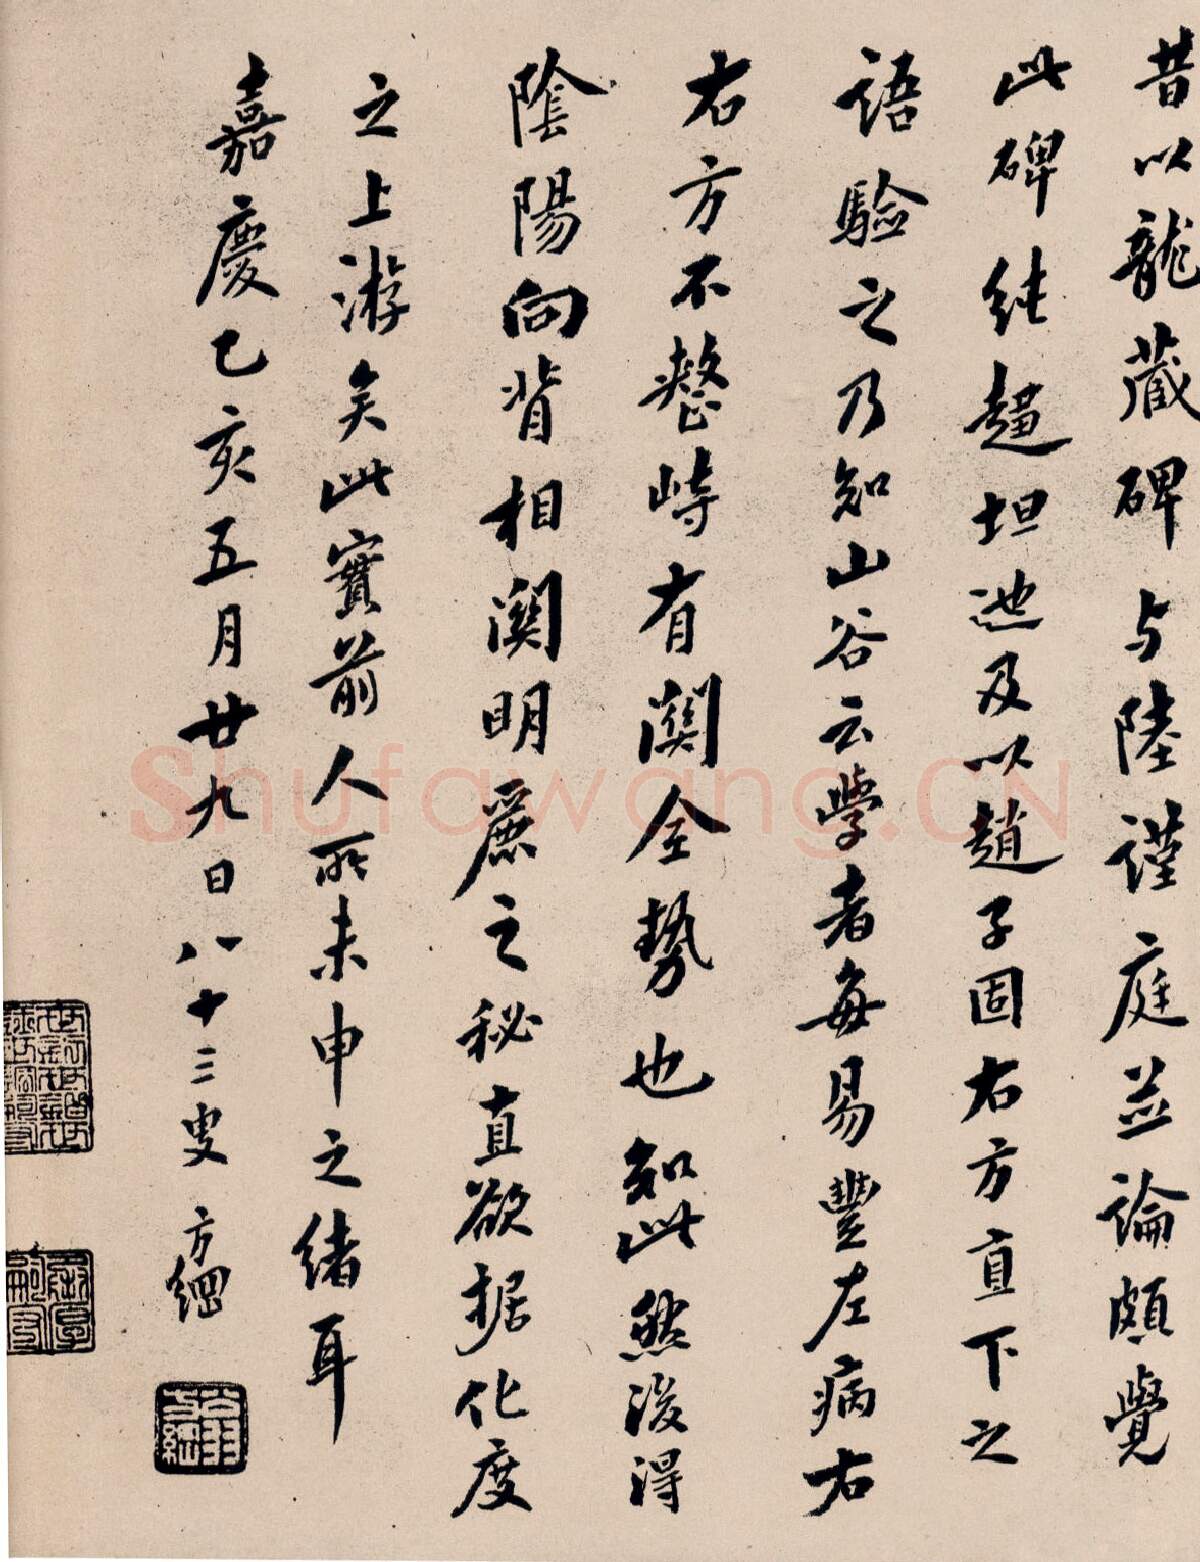 昔以龍藏碑与陸謹庭並論頗覺
此碑純趨坦迆及以趙子固右方直下之
語驗之乃知山谷云學者每易豐左病右
右方不整峙有関全勢也如此然後得
陰陽向背相関明麗之秘直欲据化度
之上游矣此實前人所未申之緒耳
嘉慶乙亥五月廿九日八十三叟方綱
翁方綱
shufawang.CN